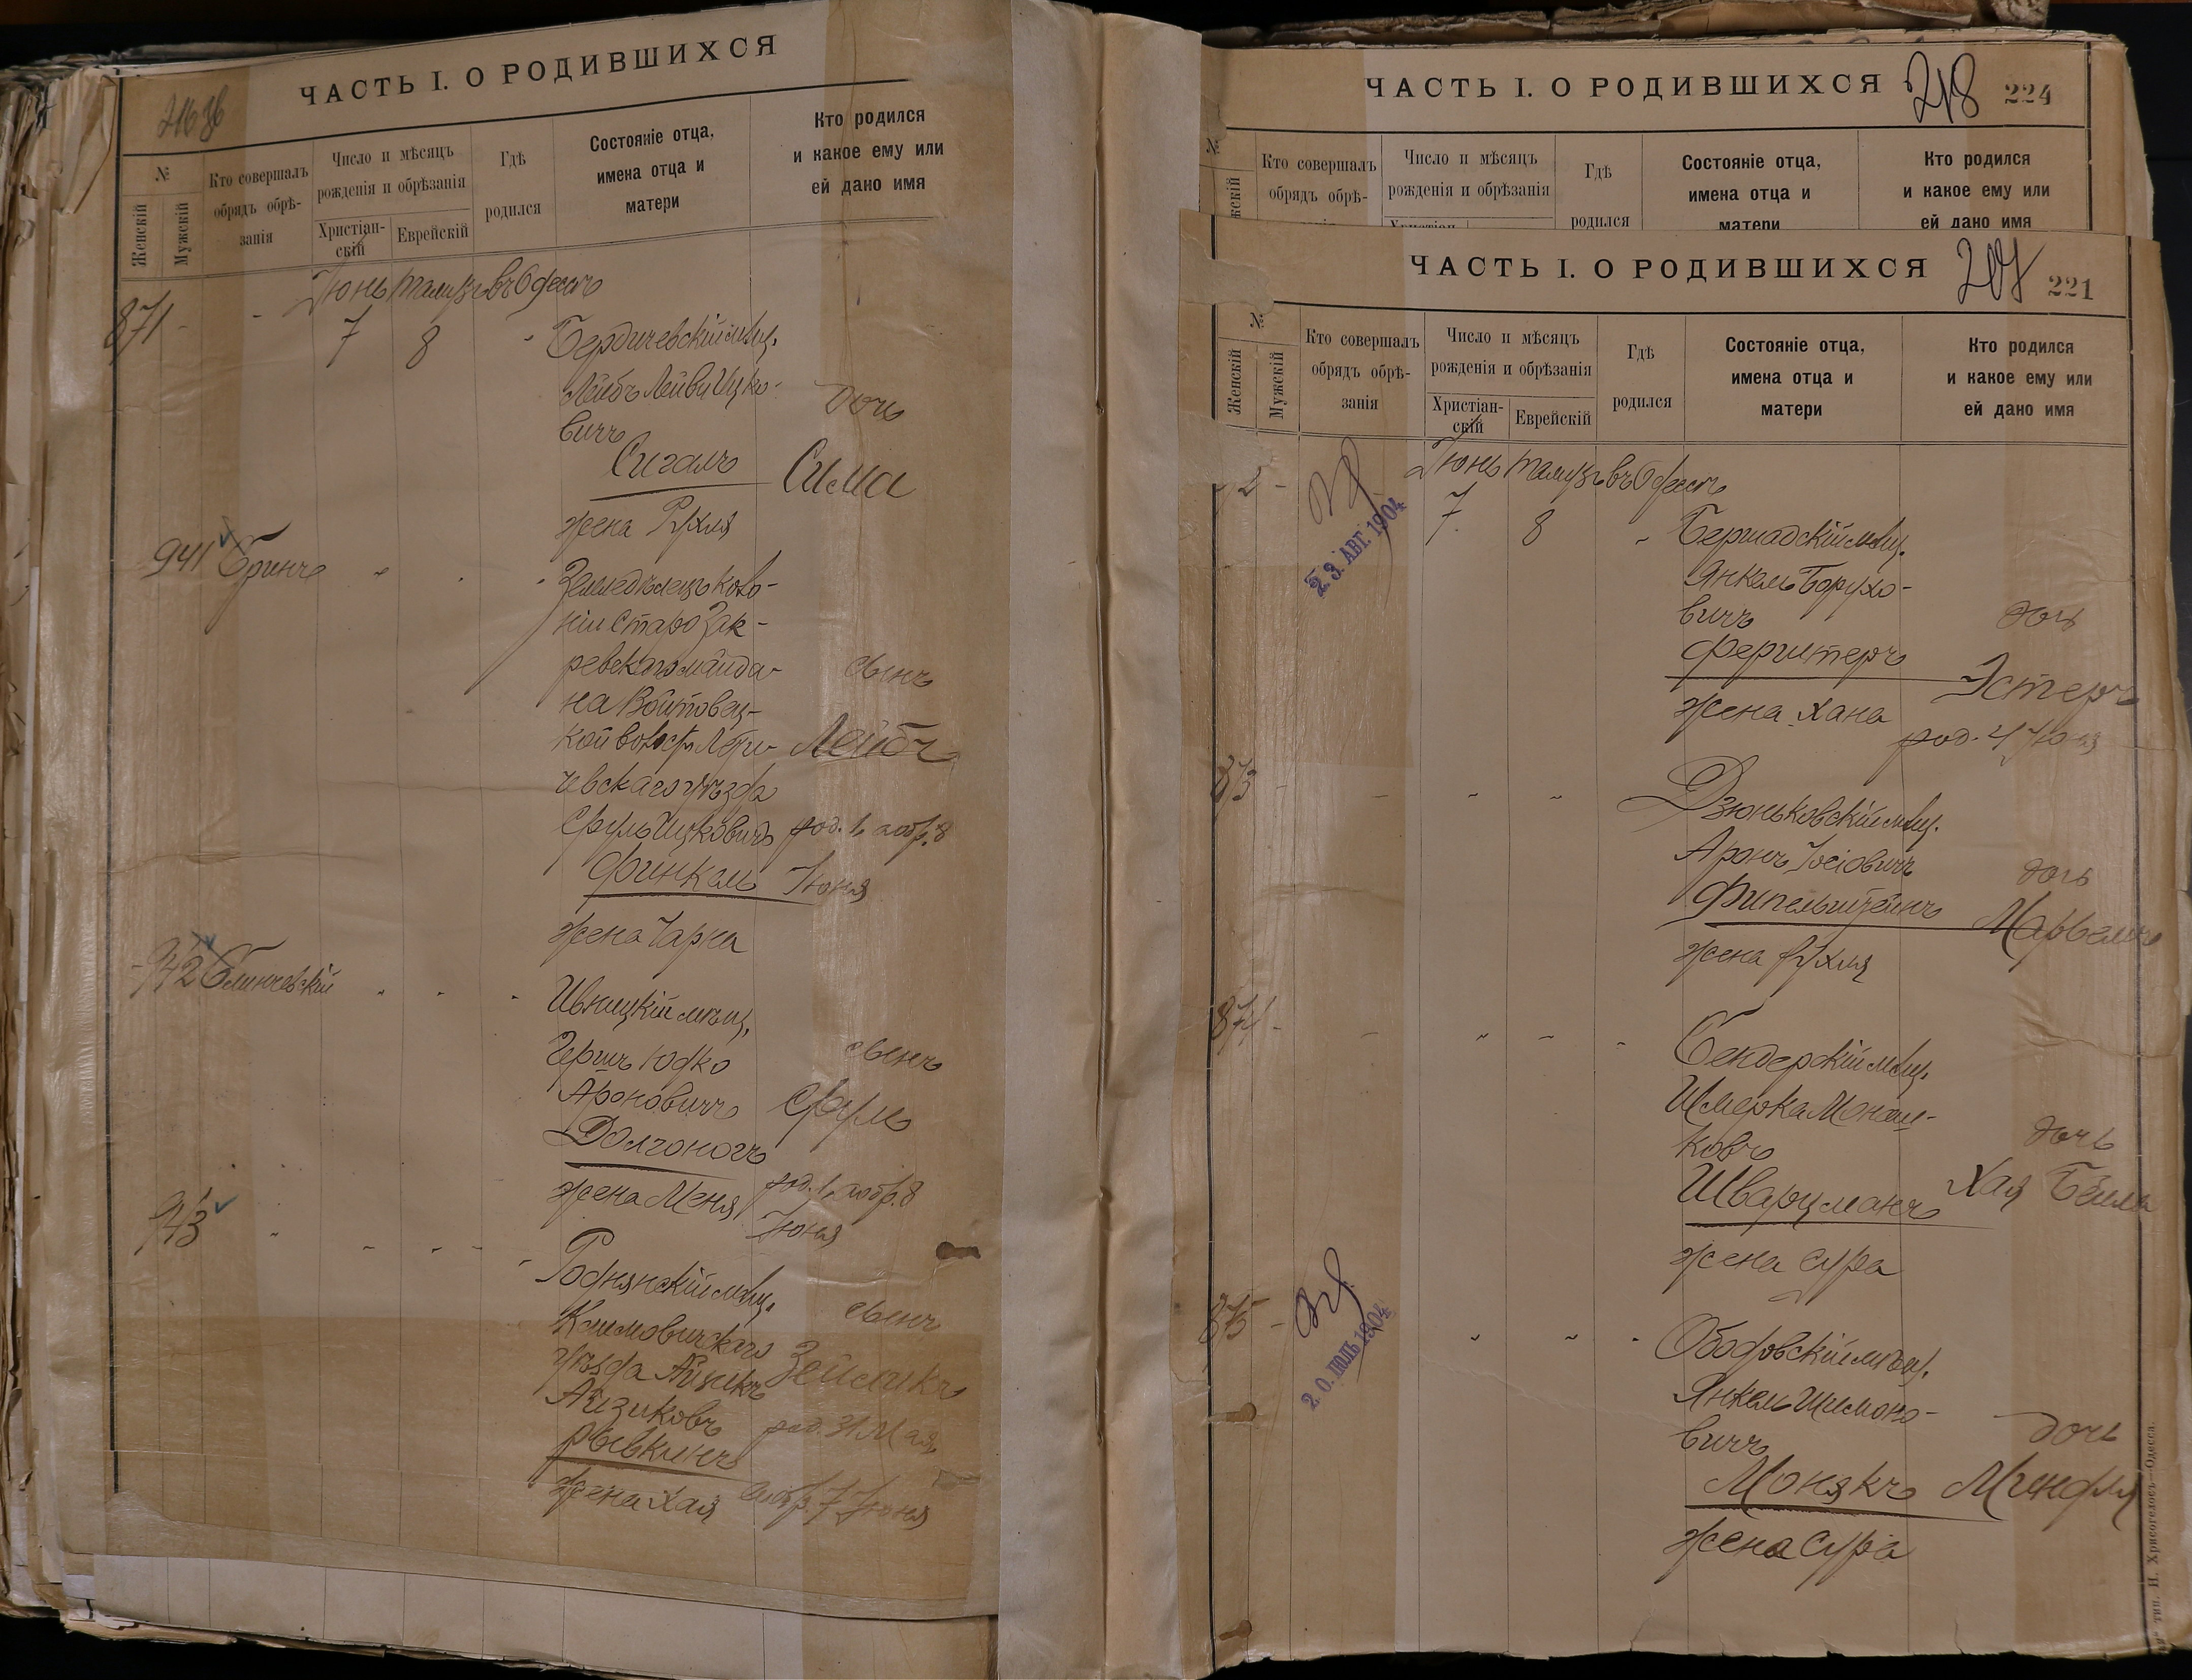 ЧАСТЬ I. О РОДИВШИХСЯ
№
Женскій
Мужскій
Кто совершалъ
обрядъ обрѣ-
занія
Число и мѣсяцъ
рожденія и обрѣзанія
Христіан-
скій
Еврейскій
Гдѣ
родился
Состояніе отца,
имена отца и
матери
Кто родился
и какое ему или
ей дано имя
Іюнь Тамузъ въ Одессѣ
871 - - 7 8 - Бердичевскій мѣщ.
Лейбъ Лейви Ицко-
вичъ дочь
Сигалъ Сима
жена Рухля
941 Бринче
Земледѣлецъ коло-
ніи Старо Зак-
ревского майда- сынъ
на Войтовец-
кой волости Лети- Лейбъ
чевскаго уѣзда
Сруль Ицковичъ род. 1, а обр. 8
Финкель Іюня
жена Чарна
942 Блинчевскій
Ивницкій мѣщ.
Гершъ Юдко сынъ
Ароновичъ Сруль
Долгоногъ
жена Меня род. 1, а обр. 8
Іюня
943 Роднянскій мѣщ.
Климовичскаго сынъ
уѣзда Айзикъ Зейликъ
Айзиковъ род. 31 Мая
Рывкинъ
жена Хая а обр. 7 Іюня
ЧАСТЬ I. О РОДИВШИХСЯ 218 224
№
Кто совершалъ
обрядъ обрѣ-
Число и мѣсяцъ
рожденія и обрѣзанія
Гдѣ
родился
Состояніе отца,
имена отца и
матери
Кто родился
и какое ему или
ей дано имя
ЧАСТЬ I. О РОДИВШИХСЯ 221
№
Женскій
Мужскій
Кто совершалъ
обрядъ обрѣ-
занія
Число и мѣсяцъ
рожденія и обрѣзанія
Христіан-
скій
Еврейскій
Гдѣ
родился
Состояніе отца,
имена отца и
матери
Кто родился
и какое ему или
ей дано имя
Іюнь Тамузъ въ Одессѣ
2 - 7 8 - Бершадскій мѣщ.
23. АВГ. 1904
Янкель Борухо-
вичъ дочь
Ферштеръ Эстеръ
жена Хана род. 4 Іюня
873 - Дзюньковскій мѣщ.
Аронъ Іосіовичъ дочь
Фипельштейнъ
жена Рухля
874 - Бендерскій мѣщ.
Шмерка Монаш-
ковъ дочь
Шварцманъ Хая Бейла
жена Сура
875 - Ободовскій мѣщ.
20. ІЮЛЬ 1904
Янкель Шимоно-
вичъ дочь
Монякъ Миндля
жена Сура
тип. И. Хрисогелосъ—Одесса.